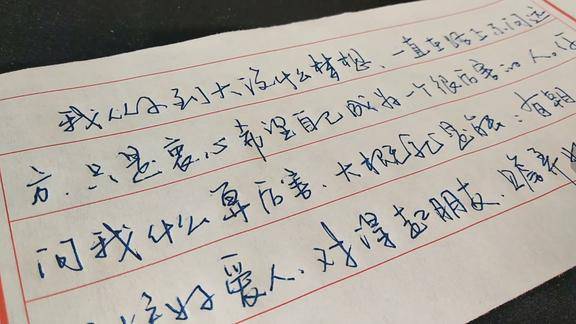 我从小到大没什么梦想、一直在路上不问远
方、只是衷心希望自己成为一个很厉害的人、
问我什么算厉害、大概就是能:有朝
好爱人、对得起朋友、